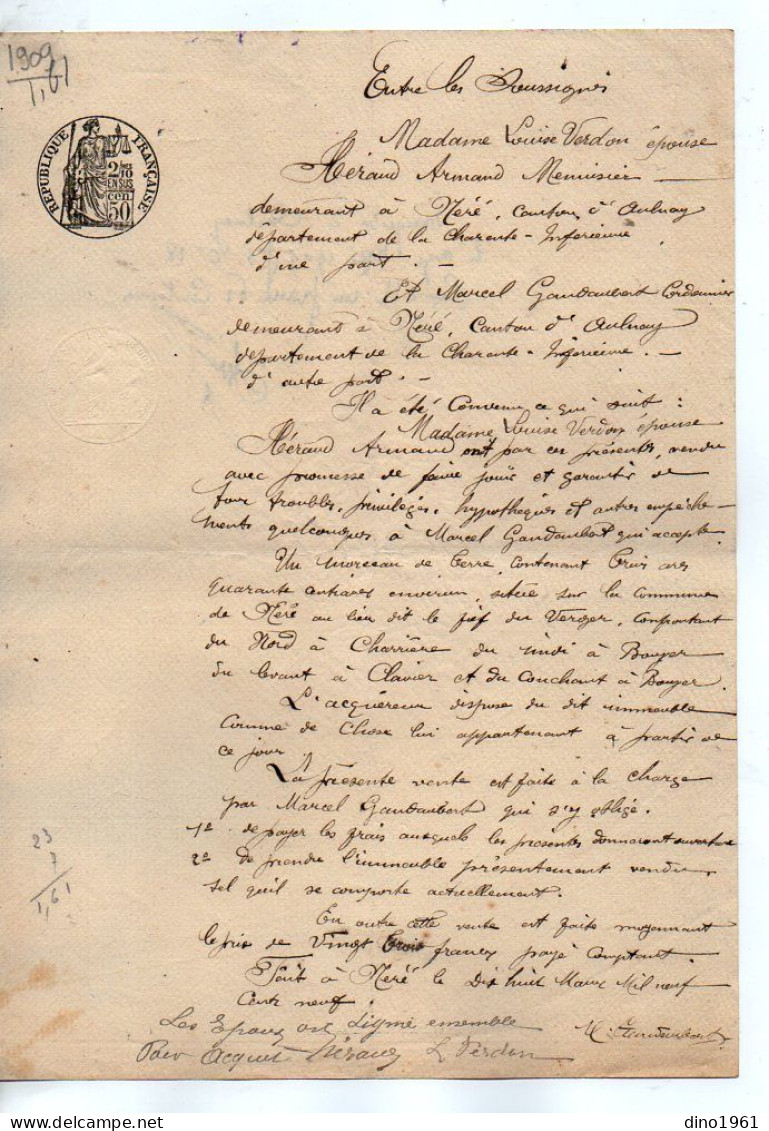 1909
1,61
RÉPUBLIQUE FRANÇAISE
2/10
EN SUS
50
Entre les Soussignés
Madame Louise Verdon épouse
Héraud Armand Menuisier
demeurant à Néré, Canton d'Aulnay
département de la Charente-Inférieure
d'une part. -
Et Marcel Gandaubert Cordonnier
demeurant à Néré, Canton d'Aulnay
département de la Charente-Inférieure. -
d'autre part. -
Il a été Convenu ce qui suit :
Madame Louise Verdon épouse
Héraud Armand ont par ces présentes, vendu
avec promesse de faire jouir et garantir de
tous troubles, privilèges, hypothèques et autres empêche-
ments quelconques, à Marcel Gandaubert qui accepte
Un morceau de terre, contenant trois ares
quarante centiares environ, située sur la commune
de Néré au lieu dit le fief du Verger, confrontant
du Nord à Charrière du midi à Bouyer
du levant à Clavier et du Couchant à Bouyer.
L'acquéreur dispose du dit immeuble
Comme de Chose lui appartenant à partir de
ce jour.
La présente vente est faite à la Charge
par Marcel Gandaubert qui s'y oblige.
1º de payer les frais auxquels les présentes donneront ouverture
2º De prendre l'immeuble présentement vendu
tel qu'il se comporte actuellement.
En outre cette vente est faite moyennant
le prix de Vingt trois francs payé comptant.
Fait à Néré le dix huit Mars Mil neuf
Cent neuf.
Les Epoux ont Signé ensemble
Pour Acquit Héraud L Verdon
M. Gandaubert
23
7
1,61
dino1961